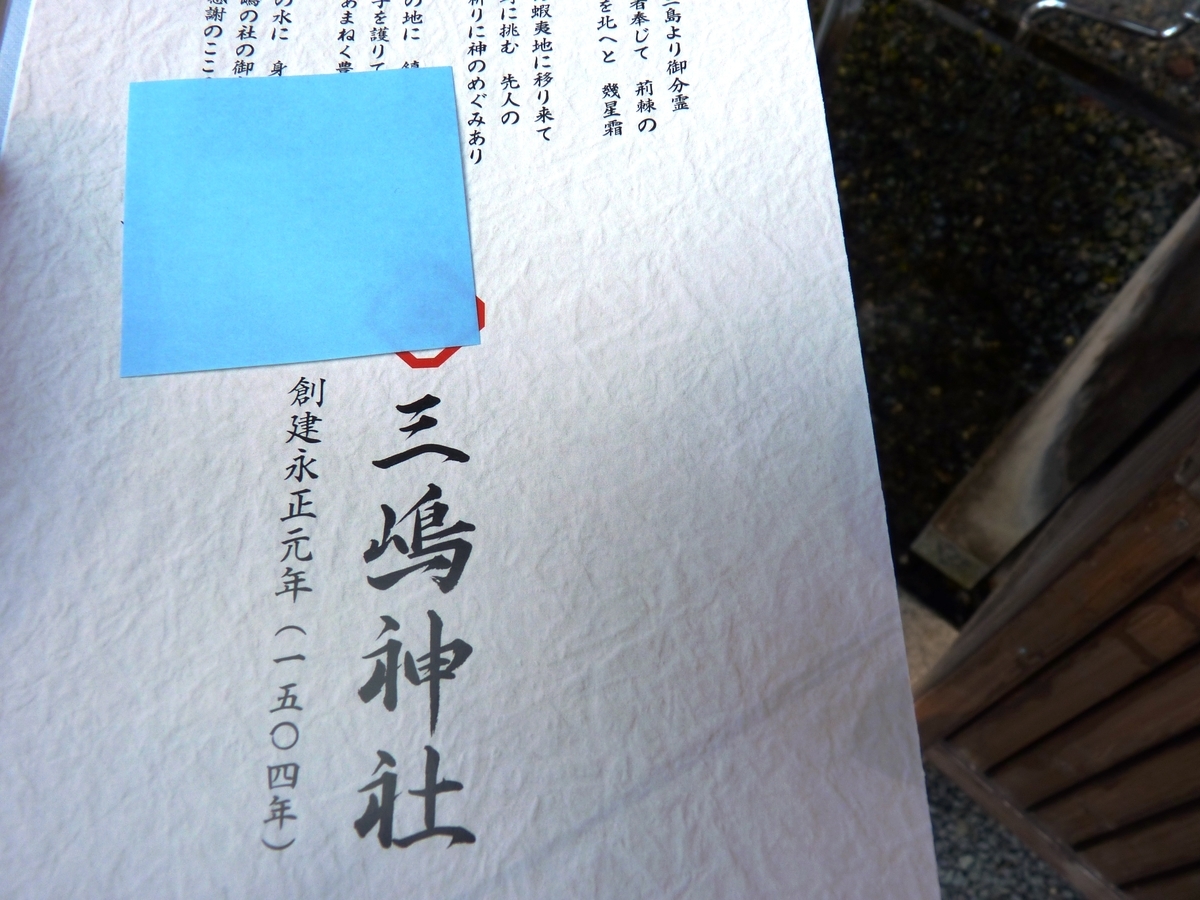 三島より御分霊
者奉じて 荊棘の
を北へと 幾星霜
蝦夷地に移り来て
に挑む 先人の
祈りに神のめぐみあり
の地に 鎮
を護りて
あまねく豊
の水に 身
嶋の社の御
感謝のここ
三嶋神社
創建永正元年（一五〇四年）